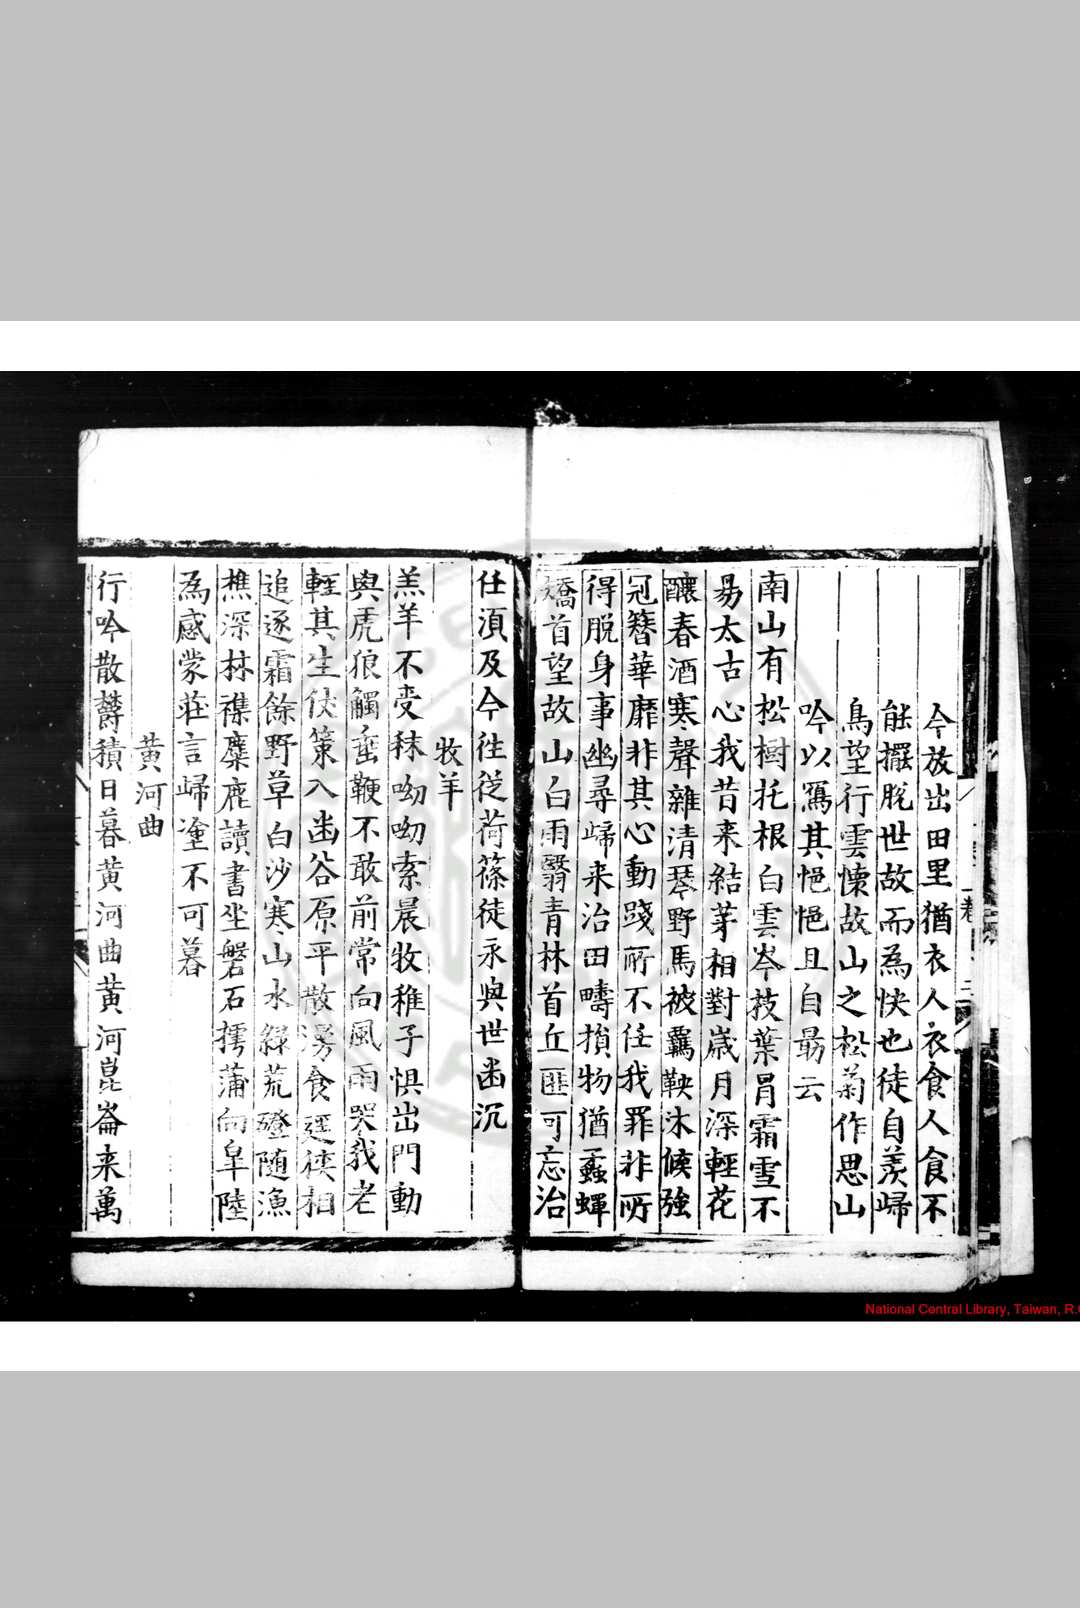 今放出田里猶衣人衣食人食不
能擺脫世故而為快也徒自羨歸
鳥望行雲懐故山之松菊作思山
吟以寫其悒悒且自朂云
南山有松樹托根白雲岑枝葉冐霜雪不
易太古心我昔来結茅相對歲月深輕花
釀春酒寒聲雜清琴野馬被羈鞅沐猴強
冠簪華靡非其心動踐所不任我罪非所
得脱身事幽尋歸来治田疇損物猶蠧蟬
矯首望故山白雨翳青林首丘匪可忘治
仕湏及今往從荷篠徒永與世幽沉
牧羊
羔羊不受秣呦呦索晨牧稚子惧出門動
與虎狼觸㧣鞭不敢前常向風雨哭我老
輕其生伏策入幽谷原平散漫食逕狹相
追逐霜餘野草白沙寒山水緑荒磴随漁
樵深林襍麋鹿讀書坐磐石擩蒲向皐陸
為感蒙莊言歸塗不可暮
黄河曲
行吟散欝積日暮黄河曲黄河崑崙来萬
National Central Library, Taiwan, R.